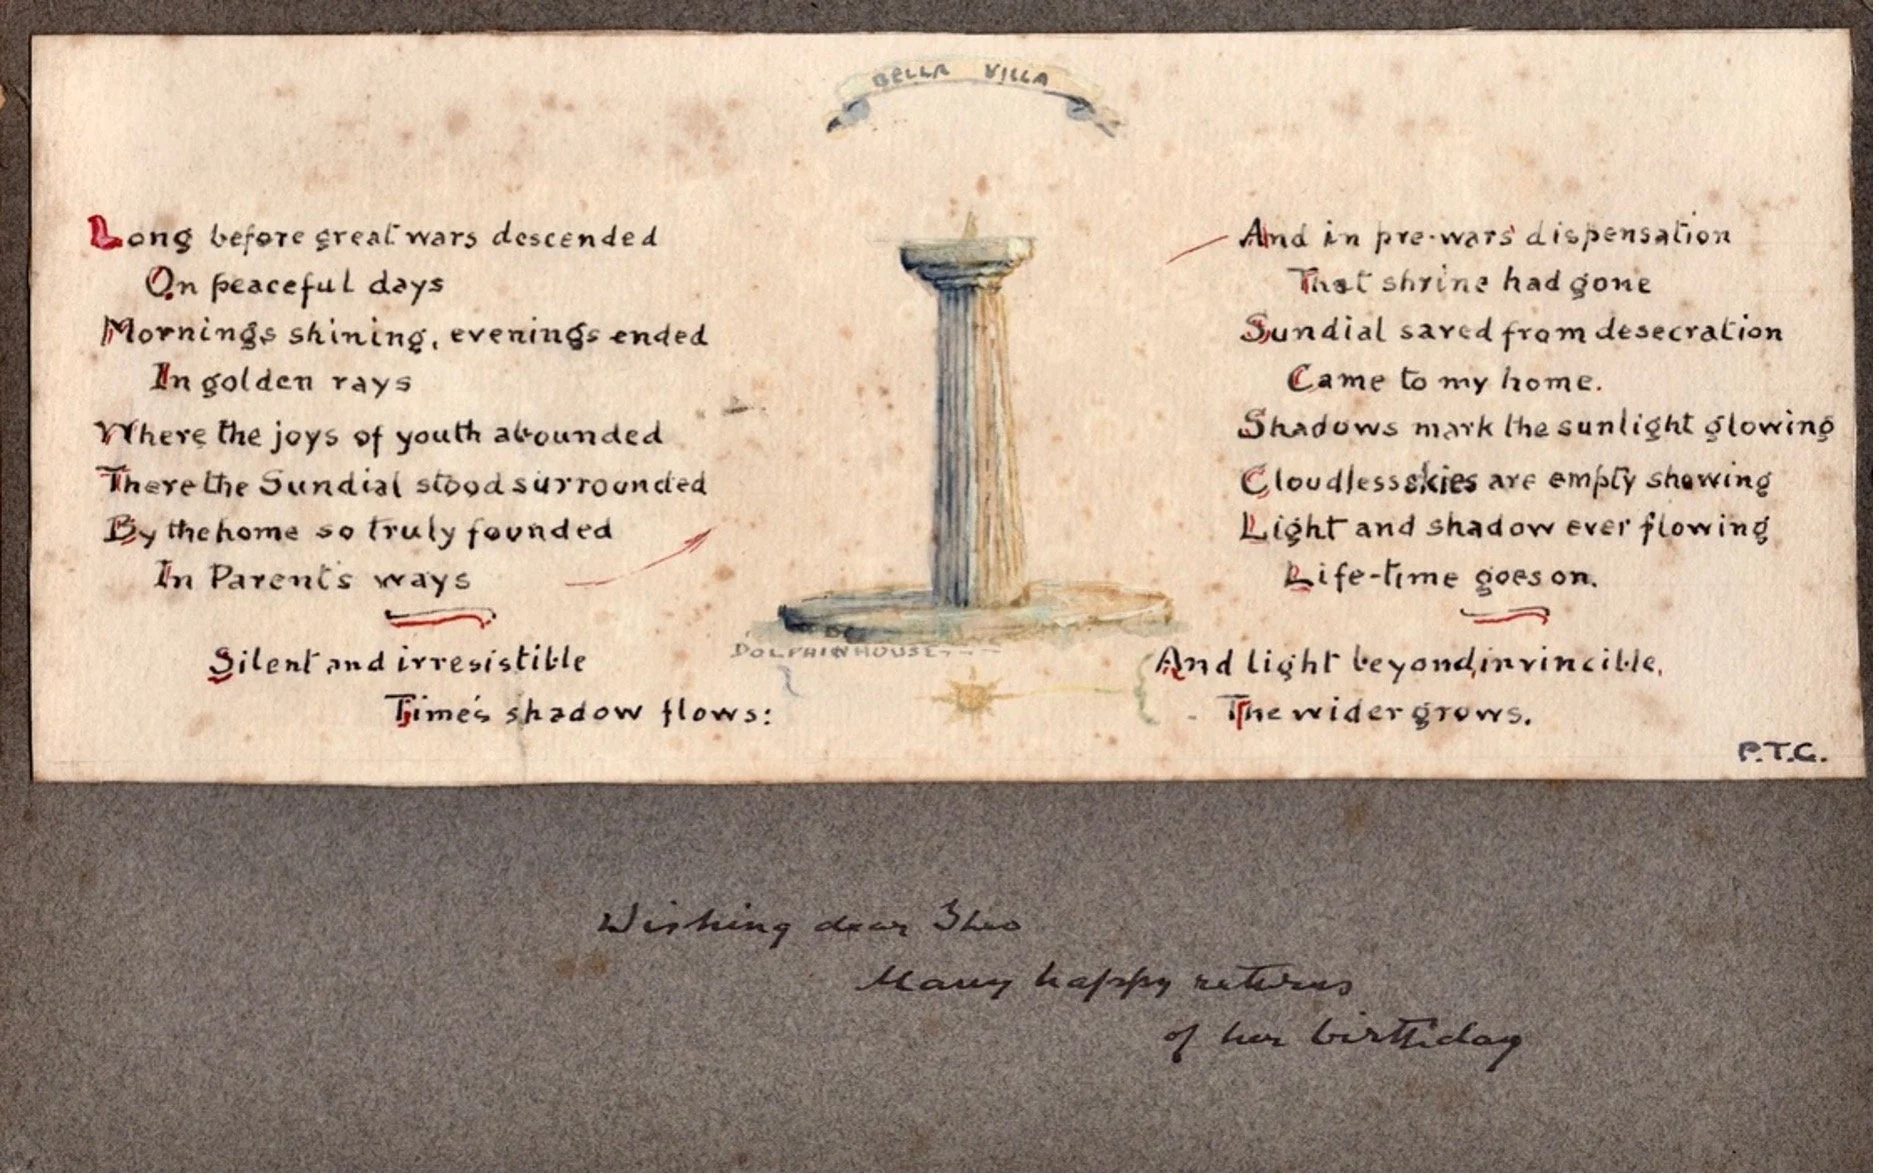 BELLA VILLA
Long before great wars descended
On peaceful days
Mornings shining, evenings ended
In golden rays
Where the joys of youth abounded
There the Sundial stood surrounded
By the home so truly founded
In Parent's ways
Silent and irresistible
Time's shadow flows:
DOLPHIN HOUSE
And in pre-wars' dispensation
That shrine had gone
Sundial saved from desecration
Came to my home.
Shadows mark the sunlight glowing
Cloudless skies are empty showing
Light and shadow ever flowing
Life-time goes on.
And light beyond, invincible,
The wider grows.
P.T.C.
Wishing dear Theo
Many happy returns
of her birthday